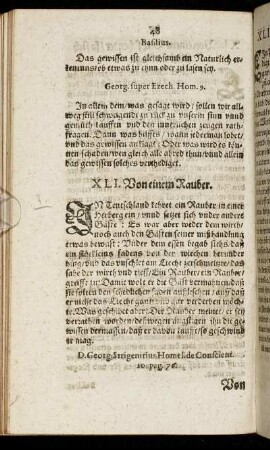 48
Basilius.
Das gewissen ist gleichsamb ein Natürlich er-
kenntnus ob etwas zu thun oder zu lassen sey.
Georg. super Ezech. Hom. 9.
In allem dem, was gesagt wird / sollen wir all-
weg still schweigende zu rück zu unserm sinn vnnd
gemüth lauffen vnd den innerlichen zeugen nach-
fragen. Dann was hilffts / wann jederman lobet
vnd das gewissen anklagt: Oder was wird es kön-
nen schaden / wen gleich alle vbred thun / vnnd allein
das gewissen solches verthediget.
XLI. Von einem Rauber.
IN Teutschland kehret ein Rauber in einer
Herberg ein / vnnd setzet sich vnder andere
Gäste: Es war aber weder dem wirth /
noch auch den Gästen seiner mißhandlung
etwas bewust: Vnder dem essen begab sichs, daß
ein stücklein fadens von der wiechen herunder
hieng / vnd das vnschlit am Liecht zerschmeltzte / da
sahe der wirth vnd rieff / Ein Rauber / ein Rauber /
greiff zu: Damit wolt er die Gäst vermahnen / daß
sie solten den schedlichen faden auffheben / auff daß
er nicht das Liecht gantz vnd gar verderben möch-
te. Was geschihet aber? Der Rauber meinte / er sey
verrathen worden / deßwegen ängstiget ihn die ge-
wissen dermassen / daß er davon lauffe / so geschwind
er mag.
D. Georg Strigenitius Homel. de Conscient.
10. pag. 76.
Von